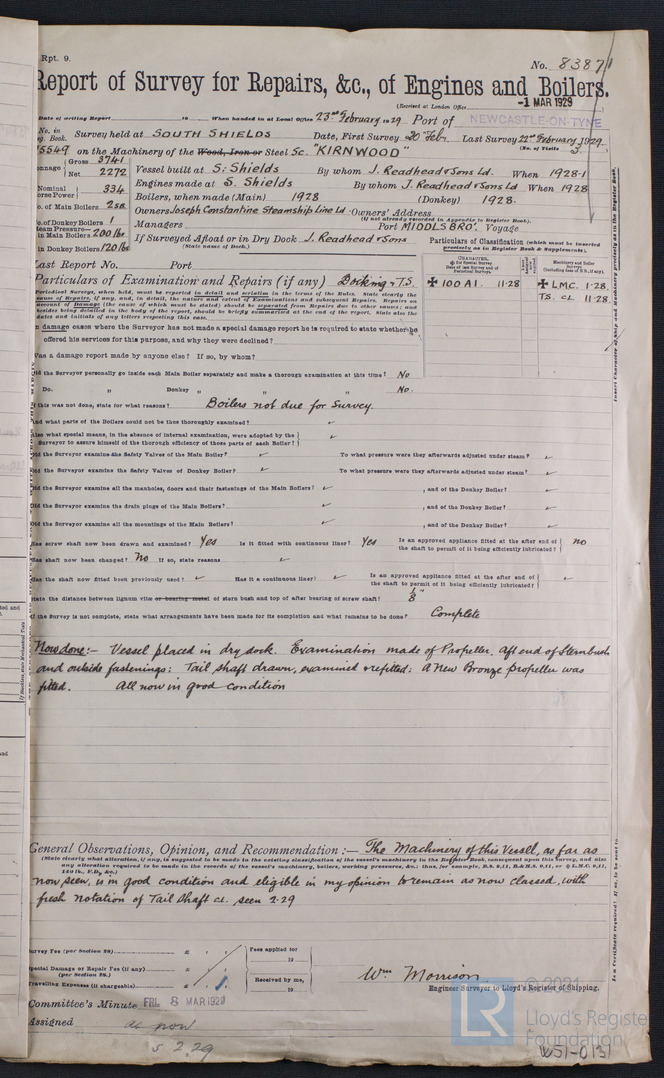 Rpt. 9.
No. 83871
Report of Survey for Repairs, &c., of Engines and Boilers.
(Received at London Office
-1 MAR 1929
Date of writing Report 19 When handed in at Local Office 23rd February 1929 Port of NEWCASTLE-ON-TYNE
No. in Book. Survey held at SOUTH SHIELDS Date, First Survey 20 Feb. Last Survey 22nd February 1929
75549 on the Machinery of the Wood, Iron or Steel Sc. "KIRNWOOD" (No. of Visits 3
Gross 3741
Net 2272
Vessel built at S. Shields By whom J. Readhead & Sons Ld. When 1928-1
Nominal Horse Power 334
Engines made at S. Shields By whom J. Readhead & Sons Ld When 1928
No. of Main Boilers 2SB Boilers, when made (Main) 1928 (Donkey) 1928.
No. of Donkey Boilers 1 Owners Joseph Constantine Steamship Line Ld Owners' Address
(if not already recorded in Appendix to Register Book).
Steam Pressure in Main Boilers 200 lbs Managers Port MIDDLSBRO'. Voyage
in Donkey Boilers 120 lbs If Surveyed Afloat or in Dry Dock J. Readhead & Sons
(State name of Dock).
Particulars of Classification (which must be inserted precisely as in Register Book & Supplements).
Last Report No. Port
Particulars of Examination and Repairs (if any) Docking & T.S.
✠ 100 A1. 11·28
✠ L.M.C. 1·28
T.S. CL. 11·28
Periodical Surveys, when held, must be reported in detail and seriatim in the terms of the Rules. State clearly the cause of Repairs, if any, and, in detail, the nature and extent of Examinations and subsequent Repairs. Repairs on account of Damage (the cause of which must be stated) should be separated from Repairs due to other causes; and besides being detailed in the body of the report, should be briefly summarised at the end of the report. State also the dates and initials of any letters respecting this case.
In damage cases where the Surveyor has not made a special damage report he is required to state whether he
offered his services for this purpose, and why they were declined?
Was a damage report made by anyone else? If so, by whom?
Did the Surveyor personally go inside each Main Boiler separately and make a thorough examination at this time? No
Do. " Donkey " " No.
If this was not done, state for what reasons? Boilers not due for Survey.
And what parts of the Boilers could not be thus thoroughly examined?
Also what special means, in the absence of internal examination, were adopted by the
Surveyor to assure himself of the thorough efficiency of those parts of each Boiler?
Did the Surveyor examine the Safety Valves of the Main Boiler? To what pressure were they afterwards adjusted under steam?
Did the Surveyor examine the Safety Valves of Donkey Boiler? To what pressure were they afterwards adjusted under steam?
Did the Surveyor examine all the manholes, doors and their fastenings of the Main Boilers? , and of the Donkey Boiler?
Did the Surveyor examine the drain plugs of the Main Boilers? , and of the Donkey Boiler?
Did the Surveyor examine all the mountings of the Main Boilers? , and of the Donkey Boiler?
Has screw shaft now been drawn and examined? Yes Is it fitted with continuous liner? Yes Is an approved appliance fitted at the after end of the shaft to permit of it being efficiently lubricated? no
Has shaft now been changed? No If so, state reasons
Has the shaft now fitted been previously used? Has it a continuous liner? Is an approved appliance fitted at the after end of the shaft to permit of it being efficiently lubricated?
State the distance between lignum vitæ or bearing metal of stern bush and top of after bearing of screw shaft? 1/8"
If the Survey is not complete, state what arrangements have been made for its completion and what remains to be done? Complete
Now done:- Vessel placed in dry dock. Examination made of Propeller. Aft end of Sternbush
and outside fastenings: Tail shaft drawn, examined & refitted: A New Bronze Propeller was
fitted. All now in good condition
General Observations, Opinion, and Recommendation:— The Machinery of this Vessel, as far as
(State clearly what alteration, if any, is suggested to be made in the existing classification of the vessel's machinery in the Register Book, consequent upon this Survey, and also
now seen, is in good condition and eligible in my opinion to remain as now classed, with
fresh notation of Tail Shaft CL. seen 2·29
Survey Fee (per Section 29) £ : : Fees applied for
Special Damage or Repair Fee (if any) £ 19
(per Section 28.)
Travelling Expenses (if chargeable) £ Received by me, 19
Wm Morrison
Engineer Surveyor to Lloyd's Register of Shipping.
Committee's Minute FRI. 8 MAR 1929
Assigned as now
s 2.29
© 2021
LR
Lloyd's Register
Foundation
W51-0131